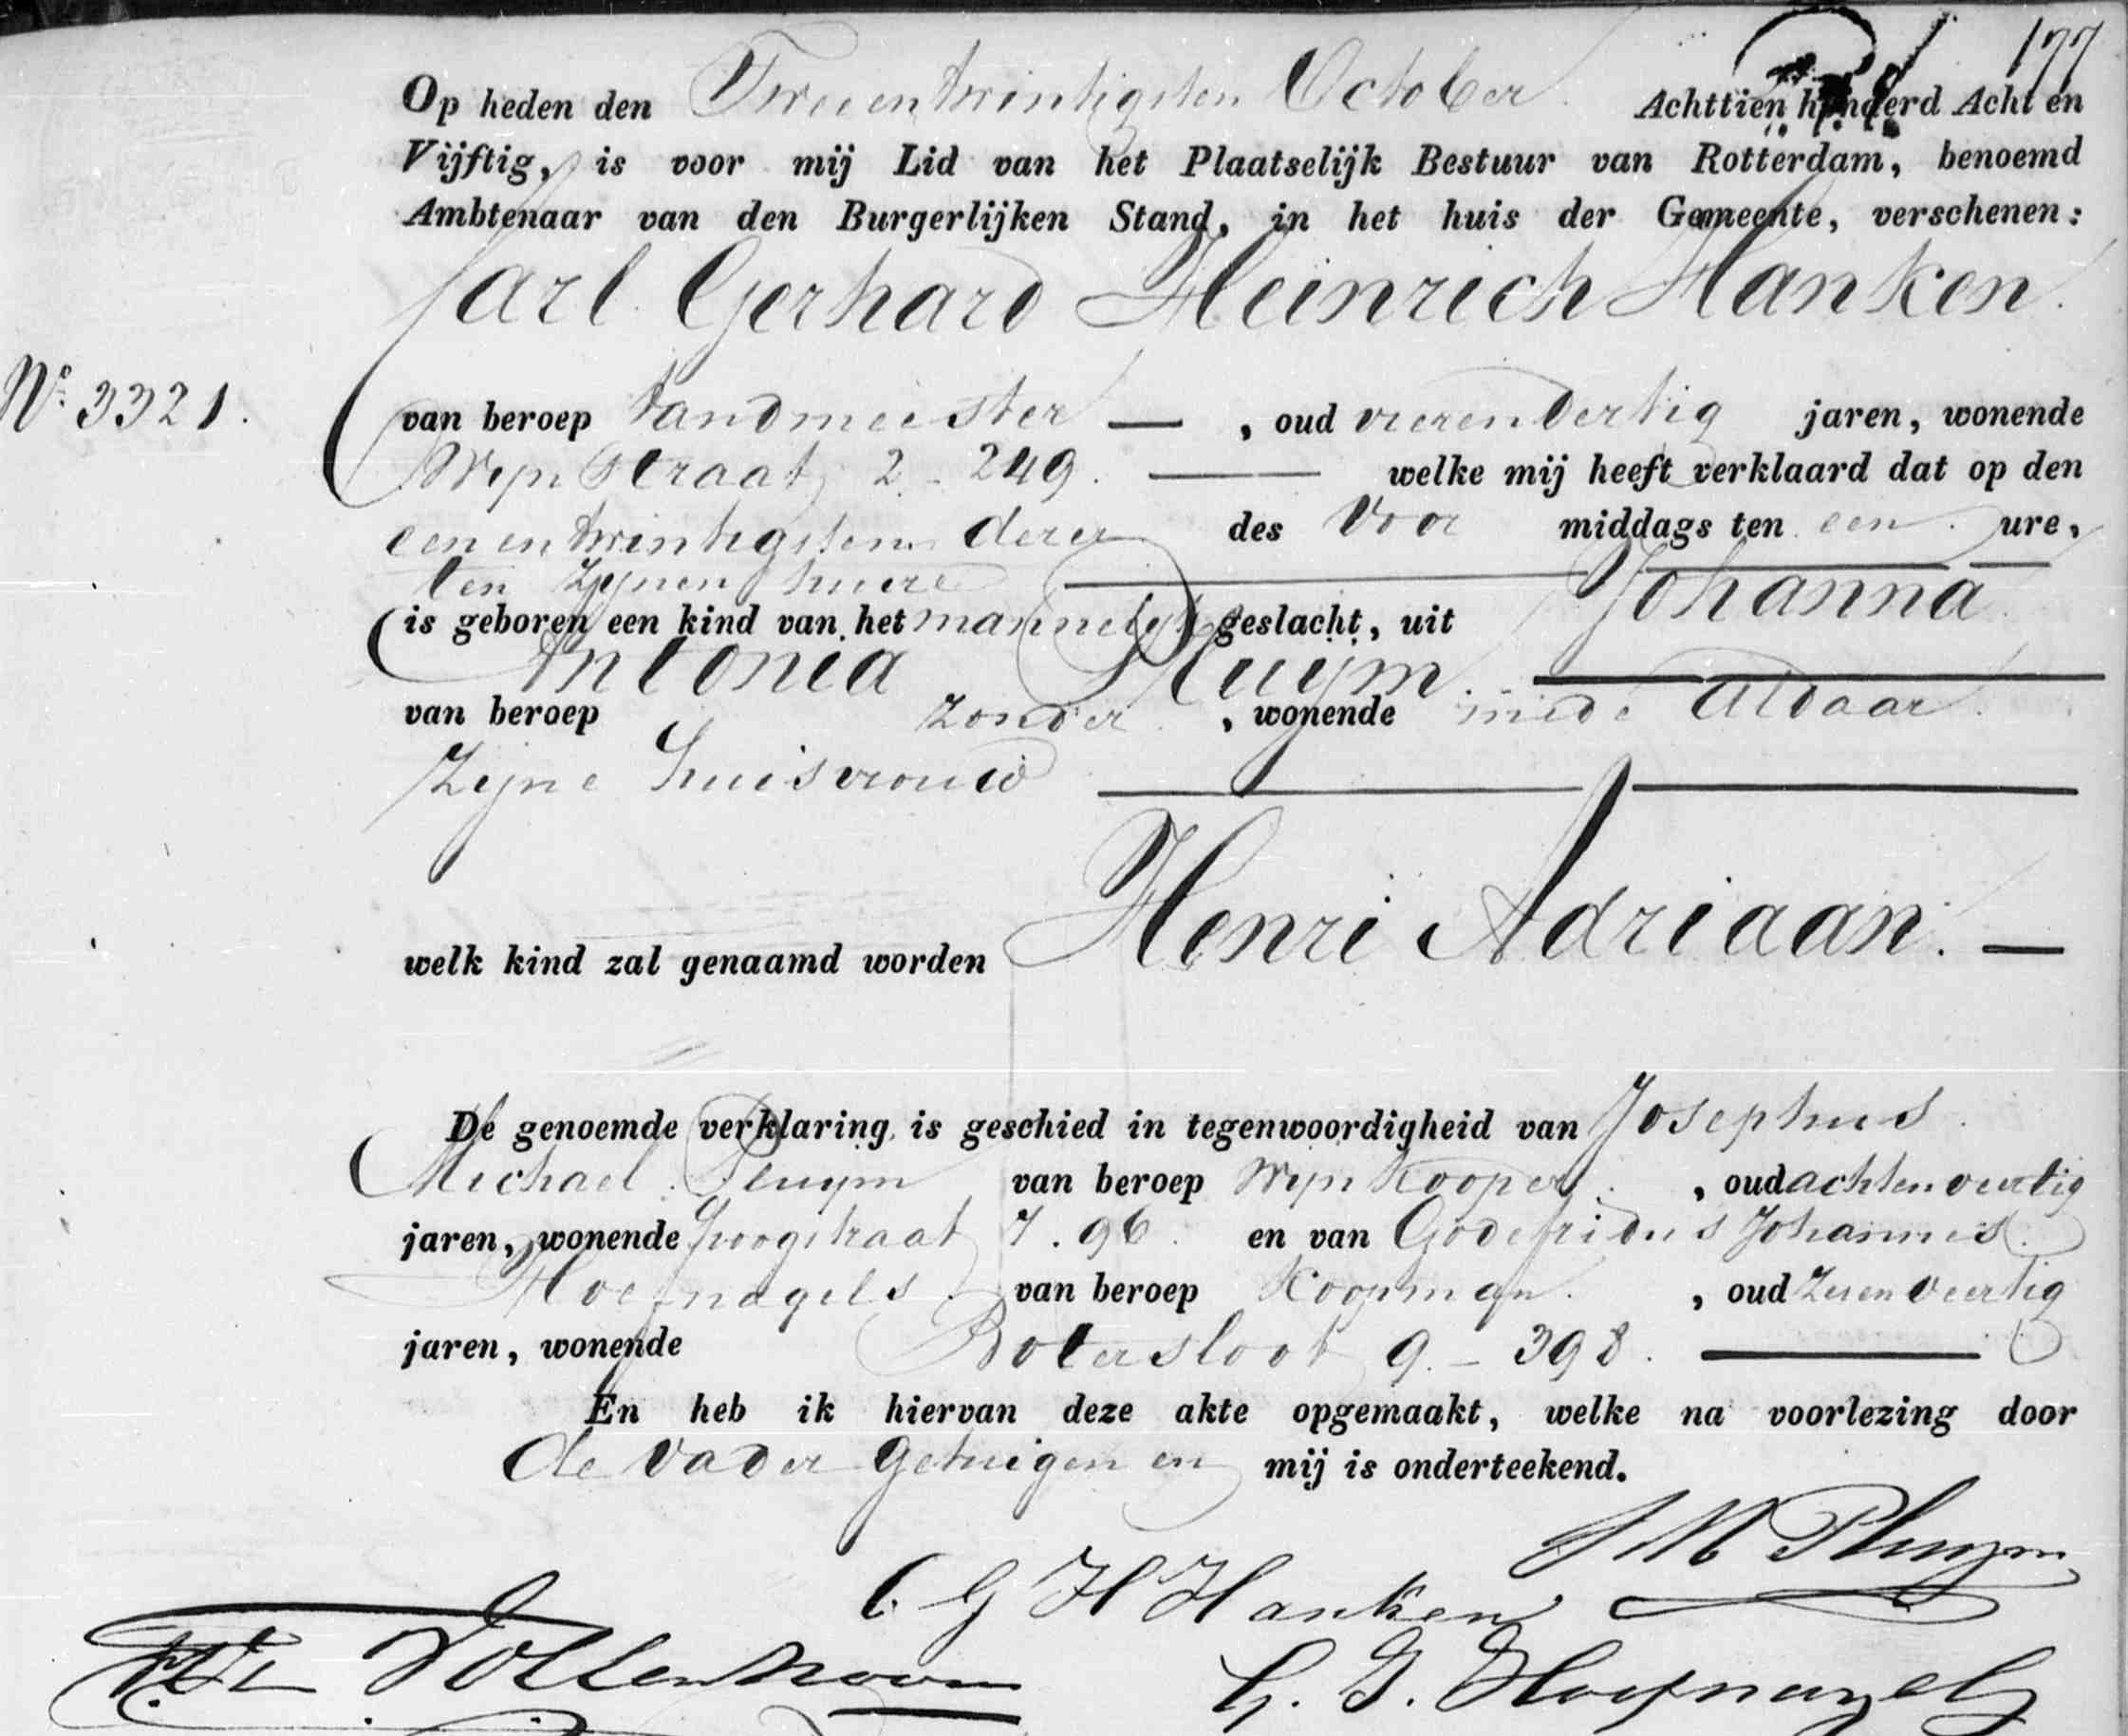 177
Op heden den Tweeentwintigsten October Achttien honderd Acht en
Vijftig, is voor mij Lid van het Plaatselijk Bestuur van Rotterdam, benoemd
Ambtenaar van den Burgerlijken Stand, in het huis der Gemeente, verschenen:
Carl Gerhard Heinrich Hanken.
No. 3321.
van beroep tandmeester — , oud vierendertig jaren, wonende
Wijnstraat 2 - 249. — welke mij heeft verklaard dat op den
eenentwintigsten dezer des Voor middags ten een ure,
ten zijnen huize —
is geboren een kind van het mannelijk geslacht, uit Johanna
Antonia Pluijm. —
van beroep zonder , wonende mede Aldaar.
Zijne huisvrouw —
welk kind zal genaamd worden Henri Adriaan. —
De genoemde verklaring is geschied in tegenwoordigheid van Josephus
Michael Pluijm van beroep Wijnkooper , oud achtenveertig
jaren, wonende hoogstraat 7. 96. en van Godefridus Johannes
Hoefnagels. van beroep Koopman. , oud Zevenveertig
jaren, wonende Botersloot 9. - 398. —
En heb ik hiervan deze akte opgemaakt, welke na voorlezing door
de vader getuigen en mij is onderteekend.
J M Pluijm
C G H Hanken
Vollenhoven
G. J. Hoefnagels